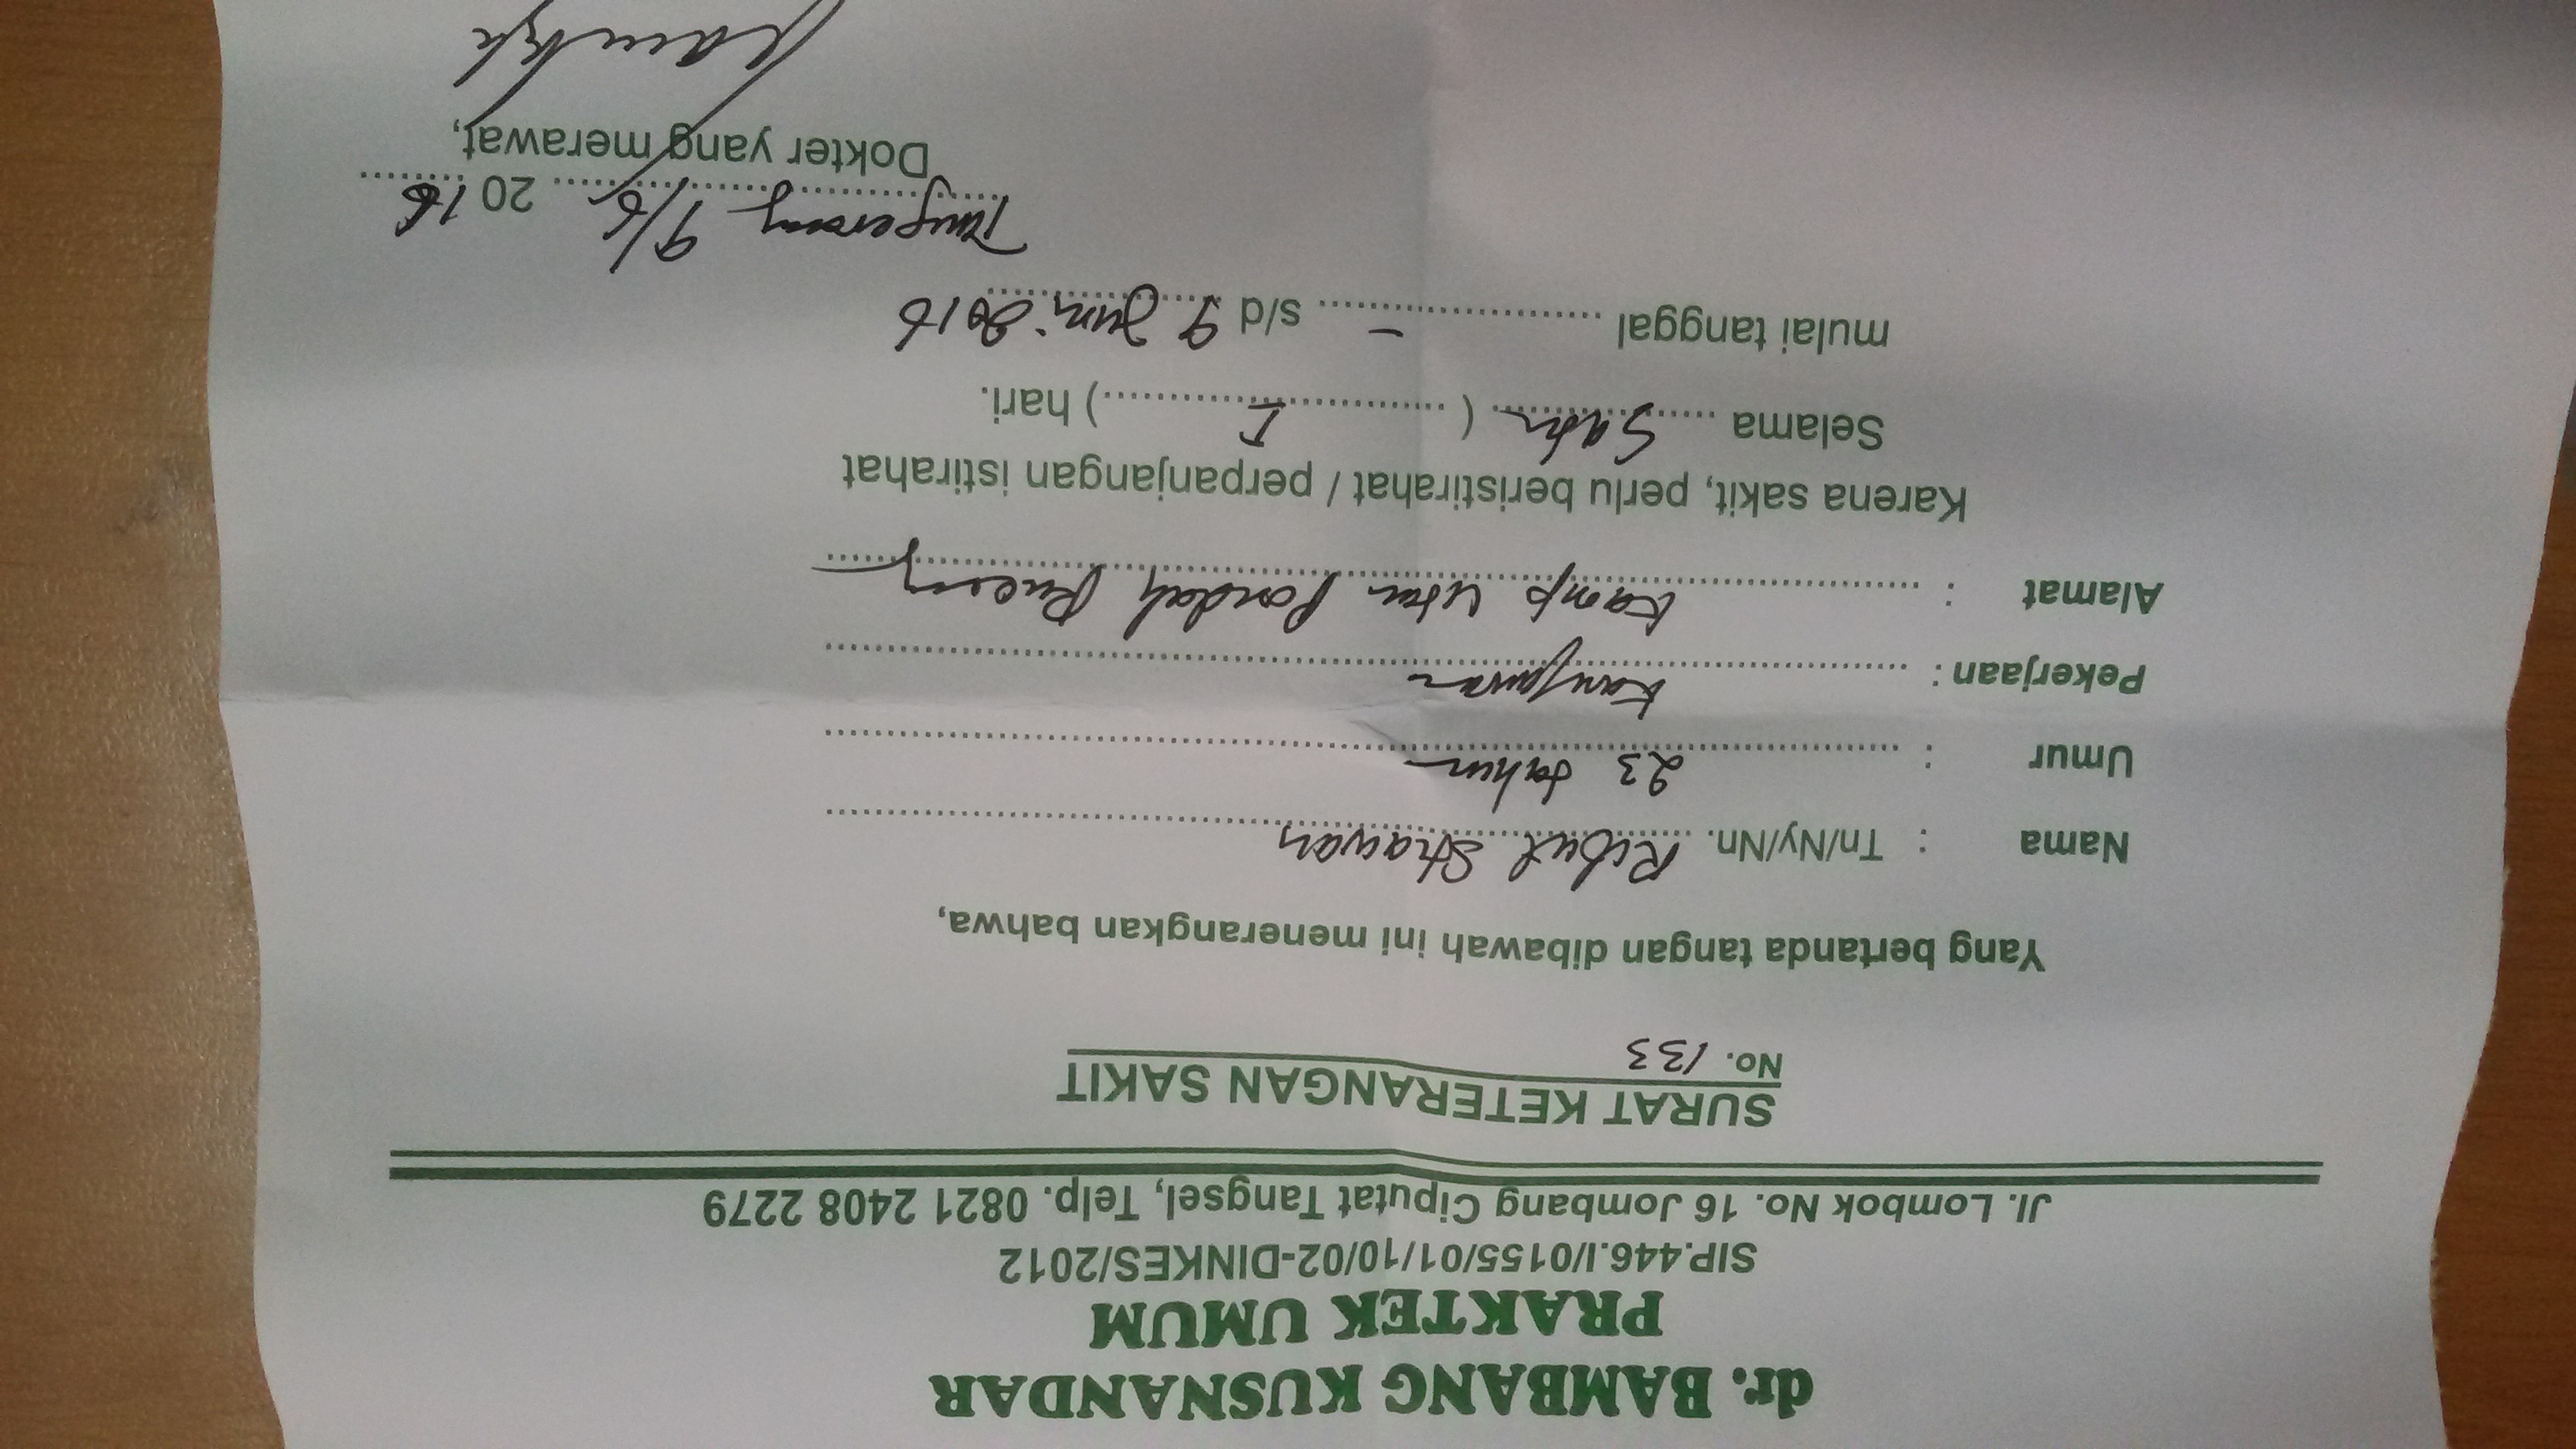 dr. BAMBANG KUSNANDAR
PRAKTEK UMUM
SIP.446.I/0155/01/10/02-DINKES/2012
Jl. Lombok No. 16 Jombang Ciputat Tangsel, Telp. 0821 2408 2279
SURAT KETERANGAN SAKIT
No. 133
Yang bertanda tangan dibawah ini menerangkan bahwa,
Nama : Tn/Ny/Nn. Ribut Strawan
Umur : 23 tahun
Pekerjaan : Karyawan
Alamat : Kamp Utan Pondok
Karena sakit, perlu beristirahat / perpanjangan istirahat
Selama Satu ( I ) hari.
mulai tanggal - s/d 9 Juni 2016
Tangerang 9/6 2016
Dokter yang merawat,